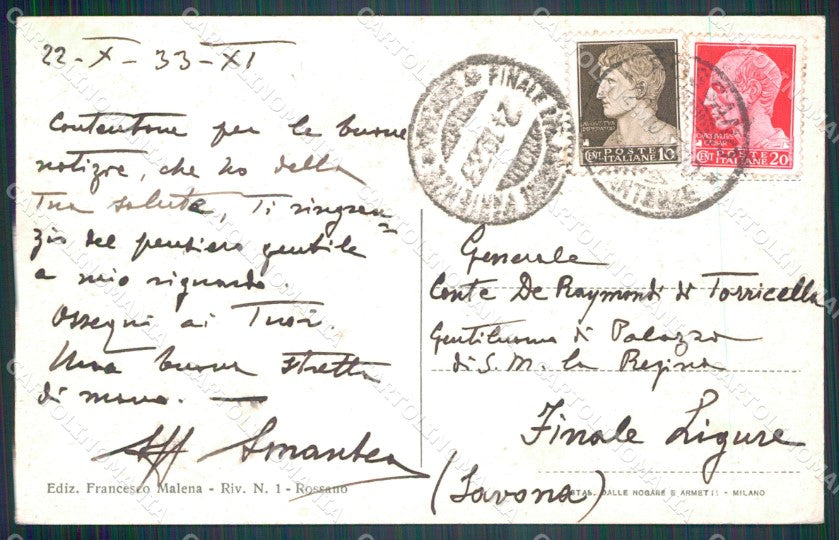 22-X-33-XI
Contentone per le buone
notizie, che ho della
Tua salute, Ti ringra=
zio del pensiero gentile
a mio riguardo.
Ossequi ai Tuoi.
Una buona stretta
di mano. —
Aff Amantea
Ediz. Francesco Malena - Riv. N. 1 - Rossano
FINALE
24.10.33
POSTE
ITALIANE
CENT. 10
POSTE
ITALIANE
CENT 20
Generale
Conte De Raymondi di Torricella
Gentiluomo di Palazzo
di S. M. la Regina
Finale Ligure
(Savona)
STAB. DALLE NOGARE E ARMETTI - MILANO
CARTOLINOMANIA